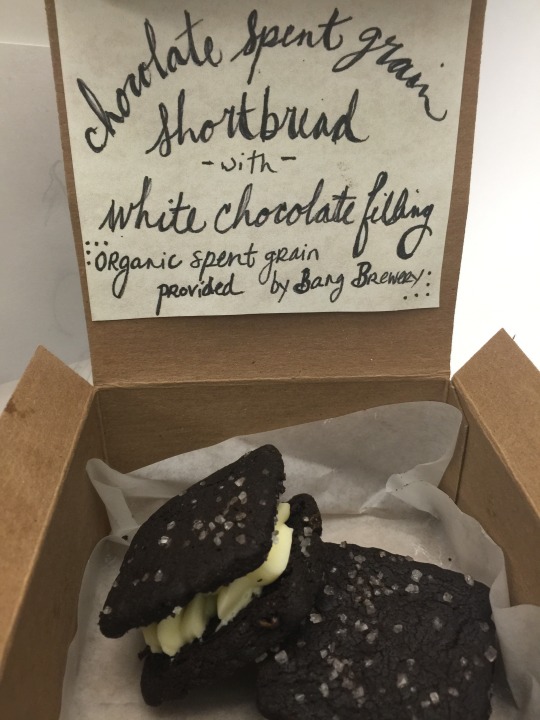 chocolate spent grain
shortbread
-with-
white chocolate filling
Organic spent grain
provided by Bang Brewery